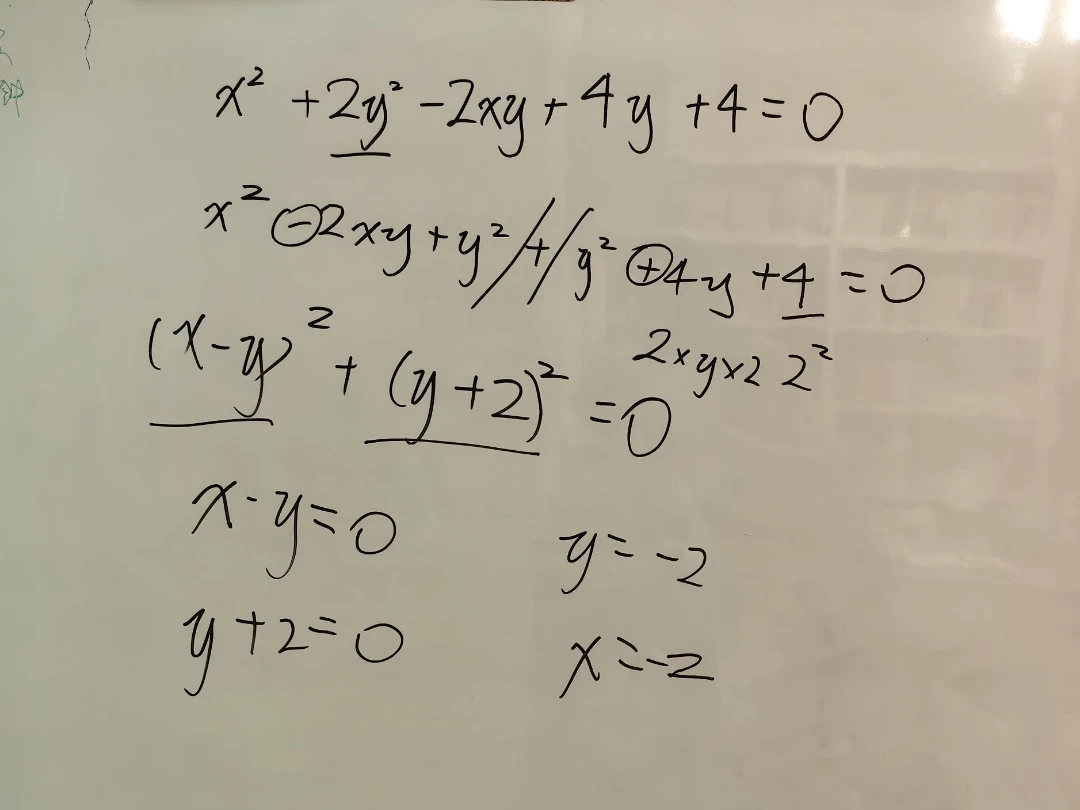 x² + 2y² - 2xy + 4y + 4 = 0
x² - 2xy + y² / + / y² + 4y + 4 = 0
2×y×2 2²
(x-y)² + (y+2)² = 0
x-y=0
y=-2
y+2=0
x=-2